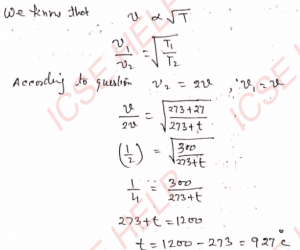 We know that v ∝ √T
v₁/v₂ = √(T₁/T₂)
According to question v₂ = 2v, v₁ = v
v/2v = √((273+27)/(273+t))
(1/2) = √(300/(273+t))
1/4 = 300/(273+t)
273+t = 1200
t = 1200 - 273 = 927°C
ICSE HELP
ICSE HELP
ICSE HELP